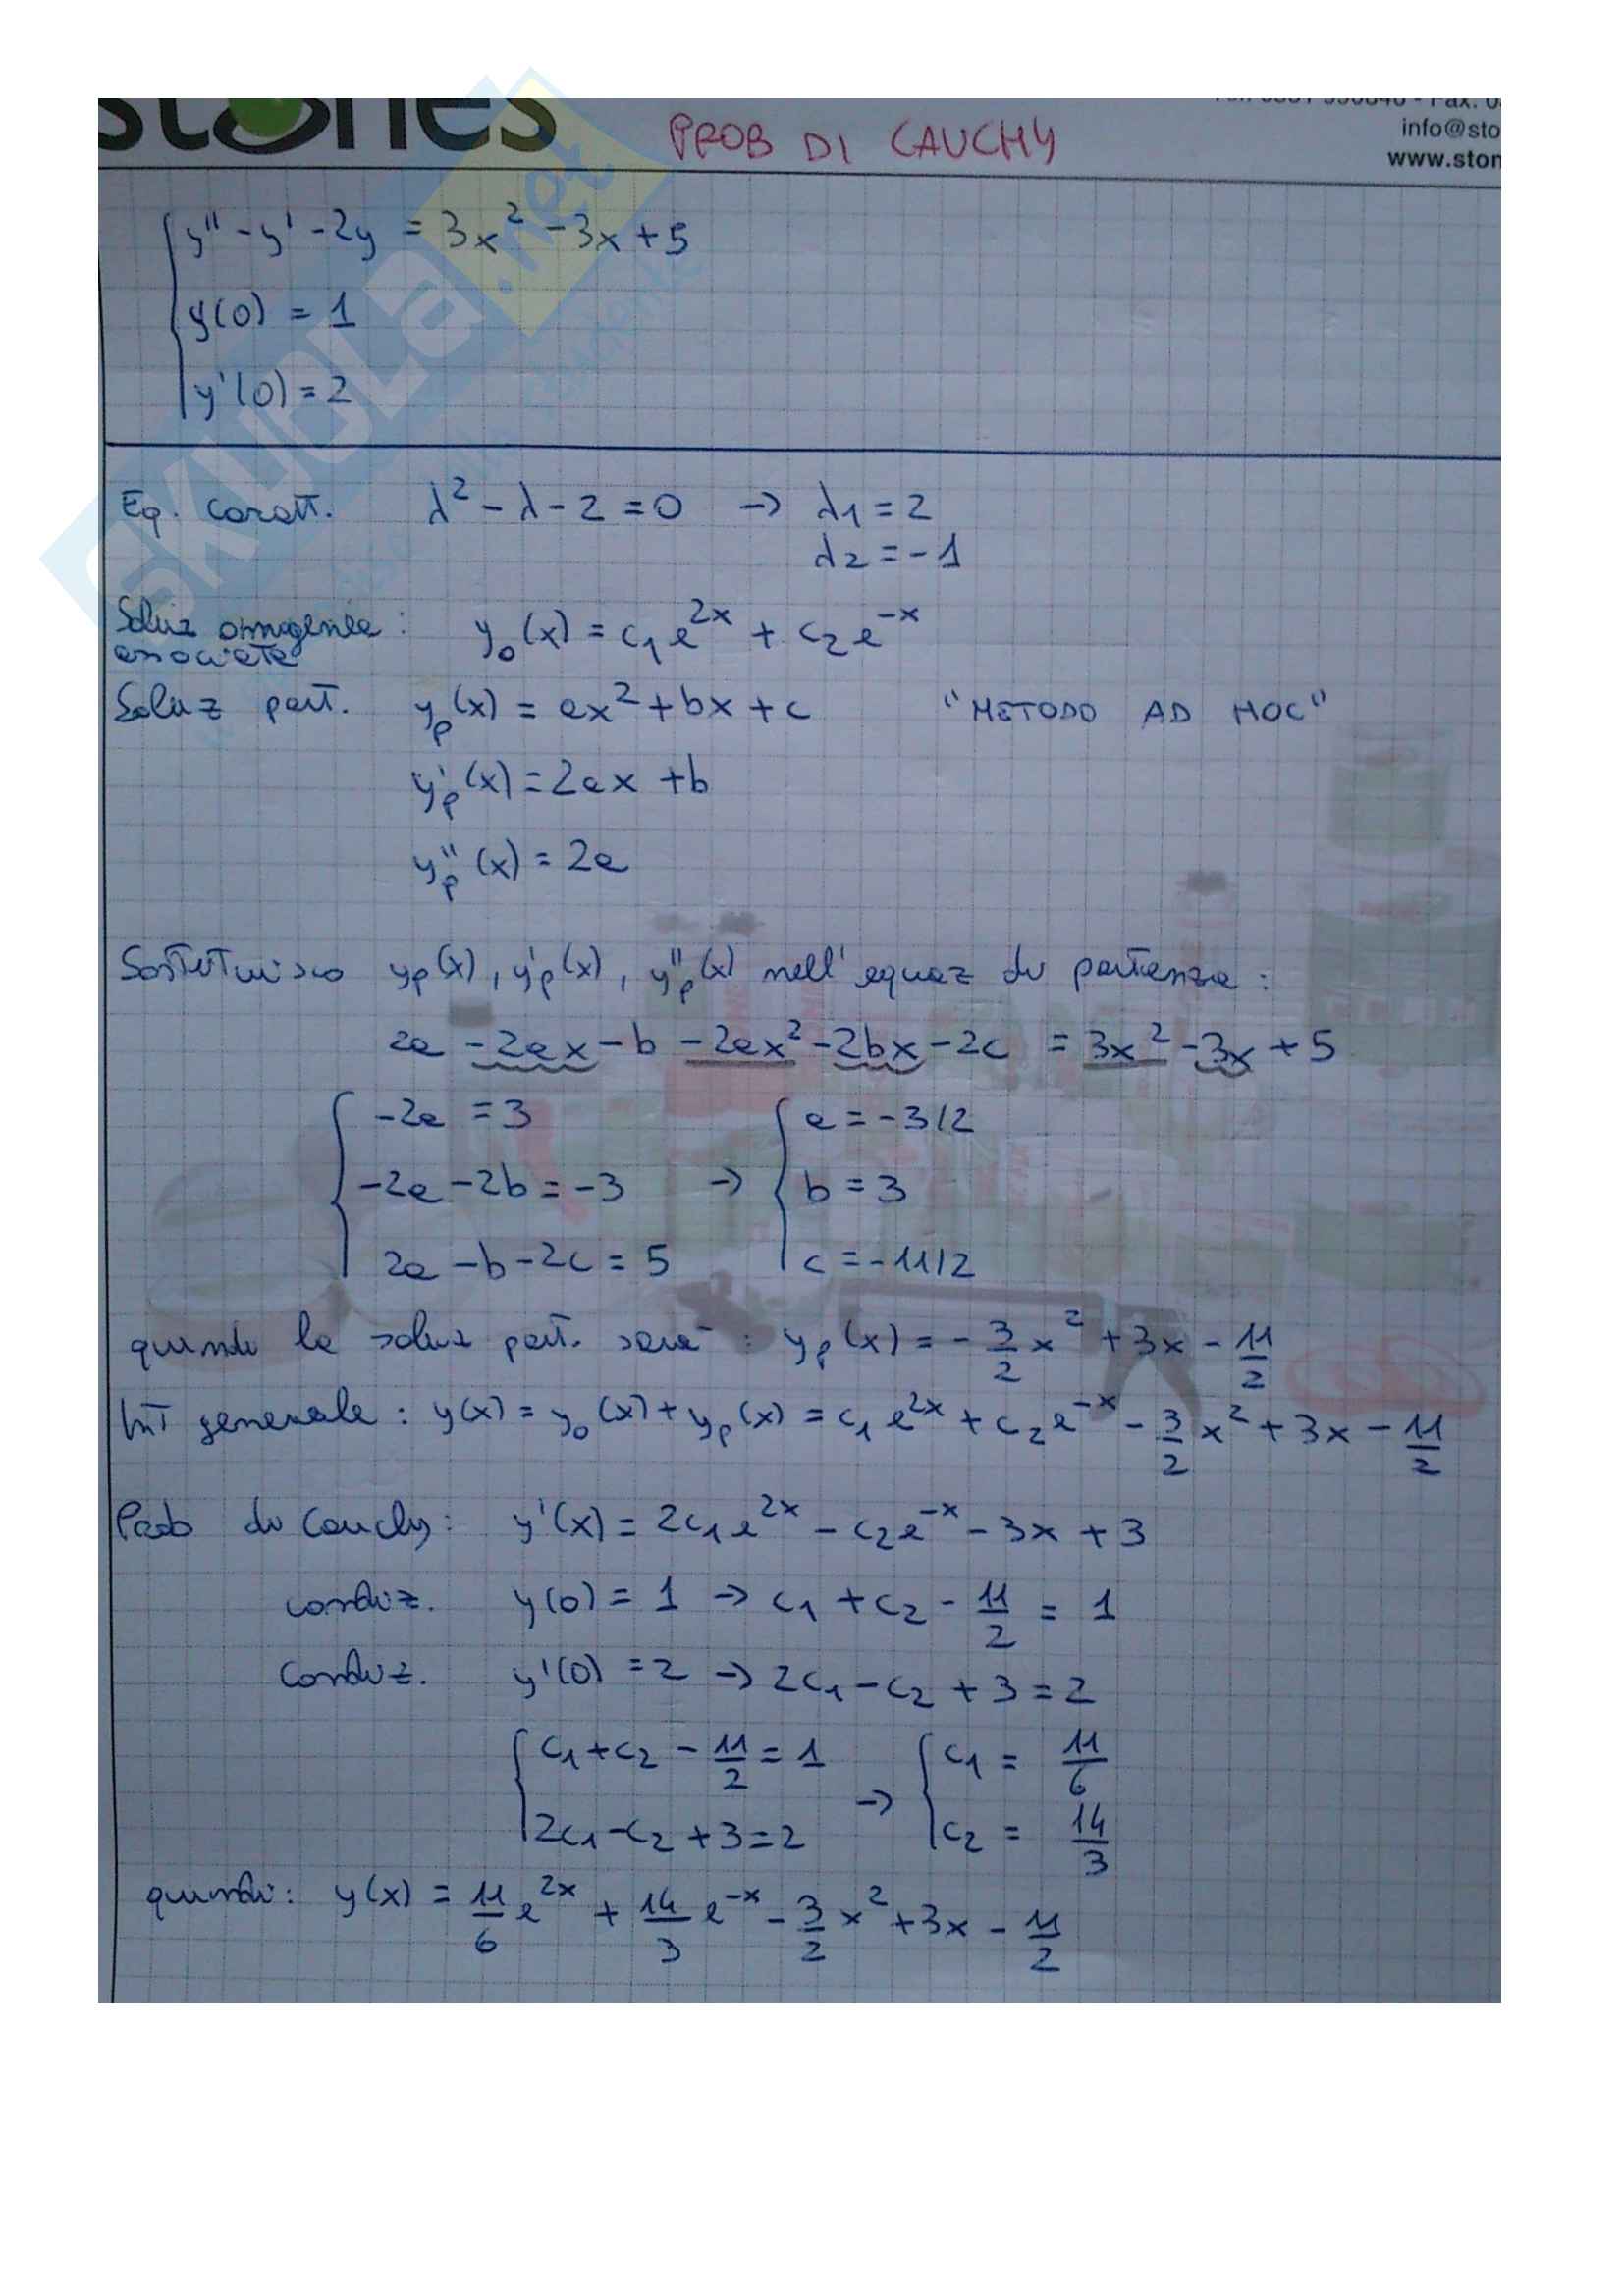 stones
PROB DI CAUCHY
info@sto
www.ston
SKUOLA.net
y'' - y' - 2y = 3x² - 3x + 5
y(0) = 1
y'(0) = 2
Eq. caratt. λ² - λ - 2 = 0 → λ1 = 2
λ2 = -1
Soluz omogenea : y₀(x) = c₁e^{2x} + c₂e^{-x}
associata
Soluz part. yp(x) = ax² + bx + c "METODO AD HOC"
y'p(x) = 2ax + b
y''p(x) = 2a
Sostituisco yp(x), y'p(x), y''p(x) nell'equaz di partenza :
2a - 2ax - b - 2ax² - 2bx - 2c = 3x² - 3x + 5
{ -2a = 3 { a = -3/2
-2a - 2b = -3 → b = 3
2a - b - 2c = 5 c = -11/2
quindi la soluz part. sarà : yp(x) = - 3/2 x² + 3x - 11/2
Int generale : y(x) = y₀(x) + yp(x) = c₁e^{2x} + c₂e^{-x} - 3/2 x² + 3x - 11/2
Prob di Cauchy : y'(x) = 2c₁e^{2x} - c₂e^{-x} - 3x + 3
condiz. y(0) = 1 → c₁ + c₂ - 11/2 = 1
Condiz. y'(0) = 2 → 2c₁ - c₂ + 3 = 2
{ c₁ + c₂ - 11/2 = 1 → { c₁ = 11/6
2c₁ - c₂ + 3 = 2 c₂ = 14/3
quindi : y(x) = 11/6 e^{2x} + 14/3 e^{-x} - 3/2 x² + 3x - 11/2